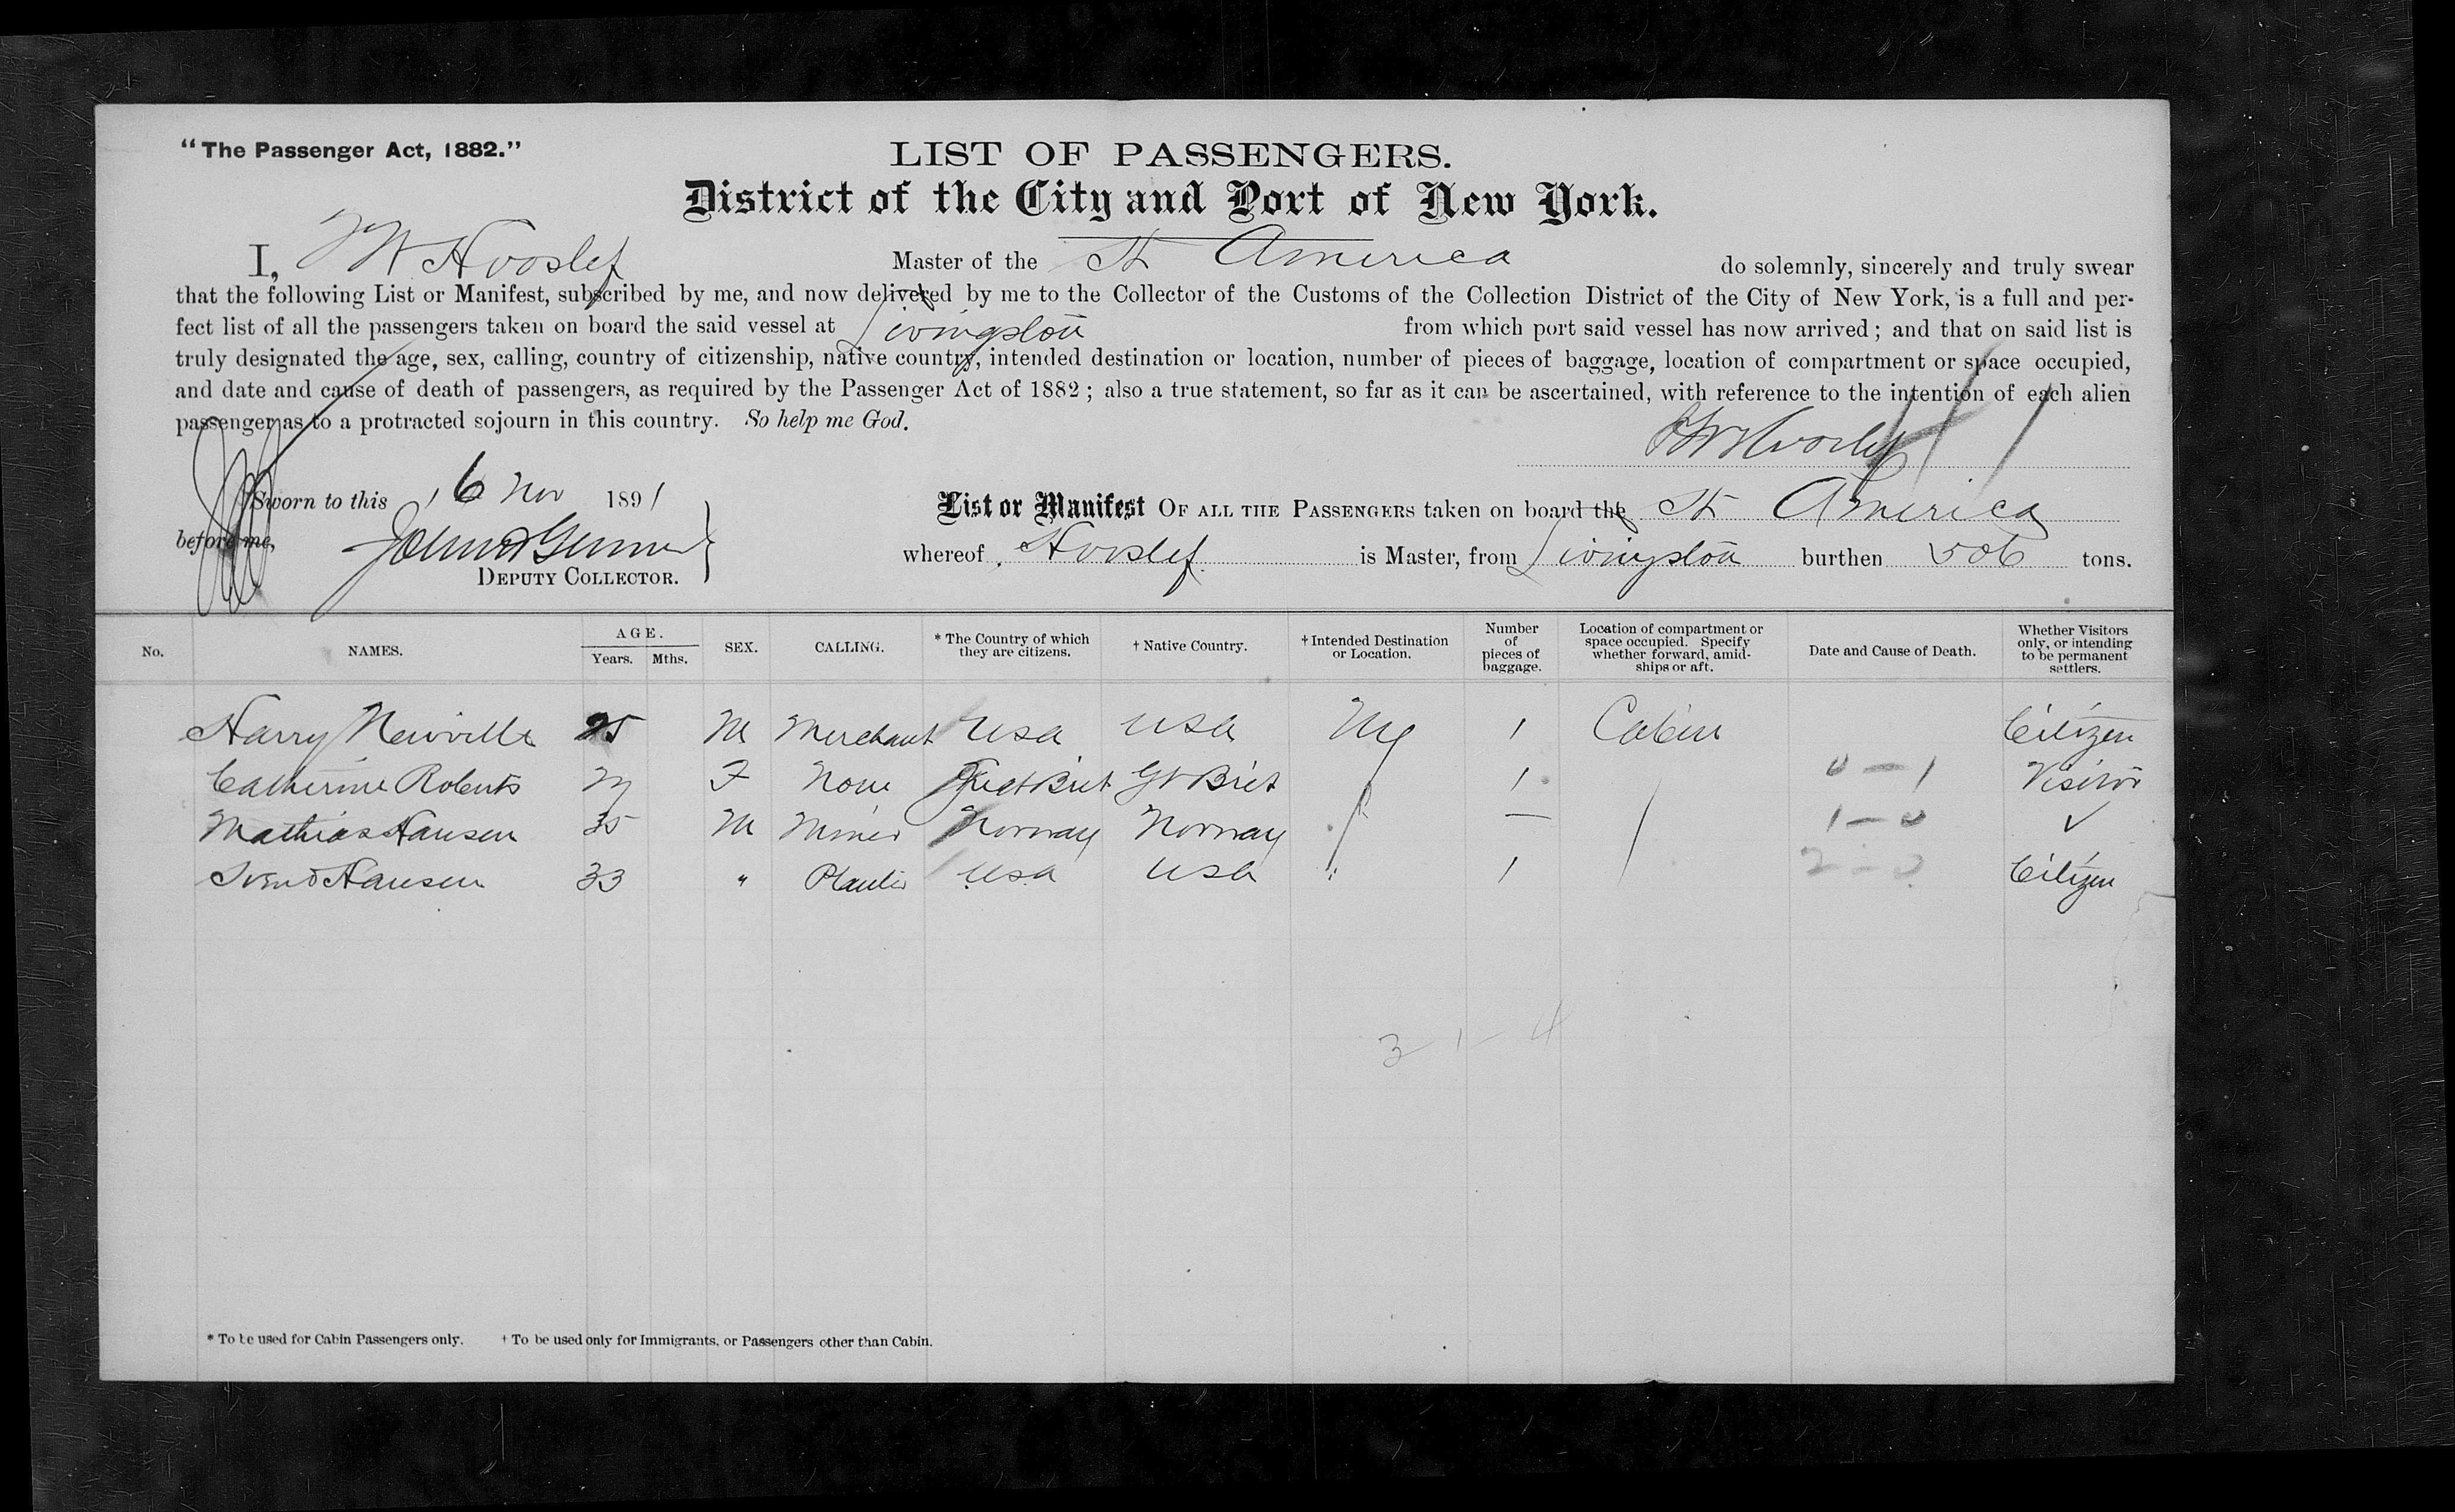 "The Passenger Act, 1882."
LIST OF PASSENGERS.
District of the City and Port of New York.
I, Hvoslef Master of the St America do solemnly, sincerely and truly swear
that the following List or Manifest, subscribed by me, and now delivered by me to the Collector of the Customs of the Collection District of the City of New York, is a full and per-
fect list of all the passengers taken on board the said vessel at Livingston from which port said vessel has now arrived; and that on said list is
truly designated the age, sex, calling, country of citizenship, native country, intended destination or location, number of pieces of baggage, location of compartment or space occupied,
and date and cause of death of passengers, as required by the Passenger Act of 1882; also a true statement, so far as it can be ascertained, with reference to the intention of each alien
passenger as to a protracted sojourn in this country. So help me God.
Hvoslef
Sworn to this 16 Nov 1891
before me,
DEPUTY COLLECTOR.
List or Manifest OF ALL THE PASSENGERS taken on board the St America
whereof Hvoslef is Master, from Livingston burthen 506 tons.
No. NAMES. AGE. Years. Mths. SEX. CALLING. * The Country of which they are citizens. † Native Country. † Intended Destination or Location. Number of pieces of baggage. Location of compartment or space occupied. Specify whether forward, amidships or aft. Date and Cause of Death. Whether Visitors only, or intending to be permanent settlers.
Harry Newville 25 M Merchant USA USA NY 1 Cabin Citizen
Catherine Roberts F None Great Brit Gt Brit 1 0-1 Visitor
Mathias Hansen 35 M Miner Norway Norway — 1-0 ✓
Hansen 33 " Planter USA USA " 1 2-0 Citizen
3-1-4
* To be used for Cabin Passengers only. † To be used only for Immigrants, or Passengers other than Cabin.